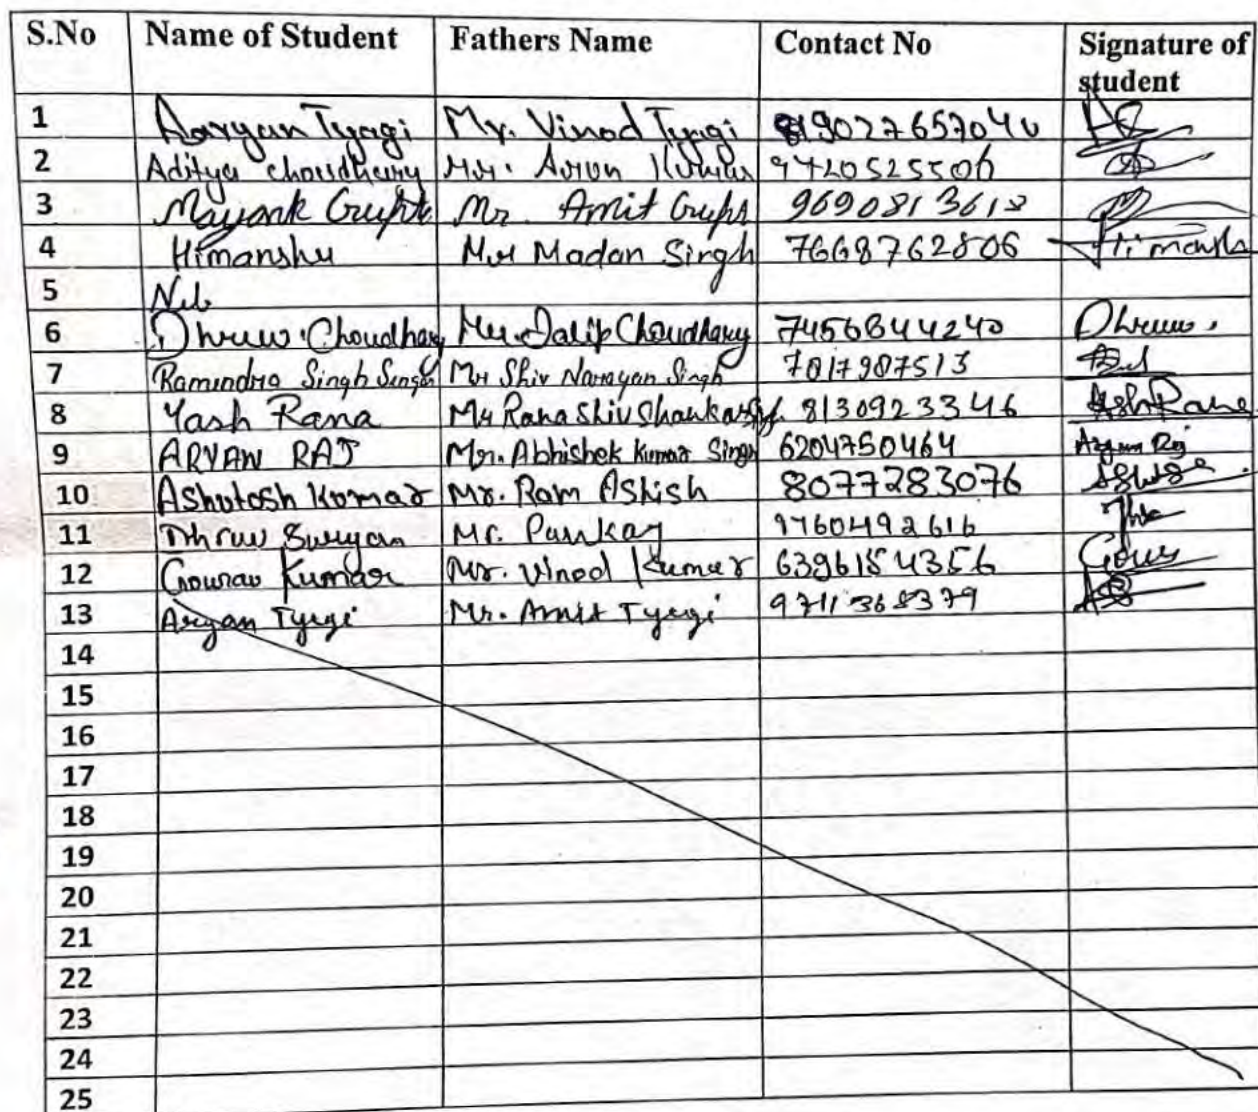 S.No Name of Student Fathers Name Contact No Signature of student
1 Aaryan Tyagi Mr. Vinod Tyagi 9027657040
2 Aditya Choudhary Mr. Arun Kumar 9720525506
3 Mayank Gupta Mr. Amit Gupta 9690813618
4 Himanshu Mr Madan Singh 7668762806 Himanshu
5 Nil
6 Dhruw Choudhary Mr. Dalip Choudhary 7456844240 Dhruw.
7 Ramindra Singh Singh Mr Shiv Narayan Singh 7017987513
8 Yash Rana Mr Rana Shiv Shankar 8130923346 Ash Rana
9 ARYAN RAJ Mr. Abhishek Kumar Singh 6204750464 Aryan Raj
10 Ashutosh Kumar Mr. Ram Ashish 8077283076
11 Dhruw Suryan Mr. Pankaj 9760492616
12 Gourav Kumar Mr. Vinod Kumar 6396154356
13 Aryan Tyagi Mr. Amit Tyagi 9711368379
14
15
16
17
18
19
20
21
22
23
24
25